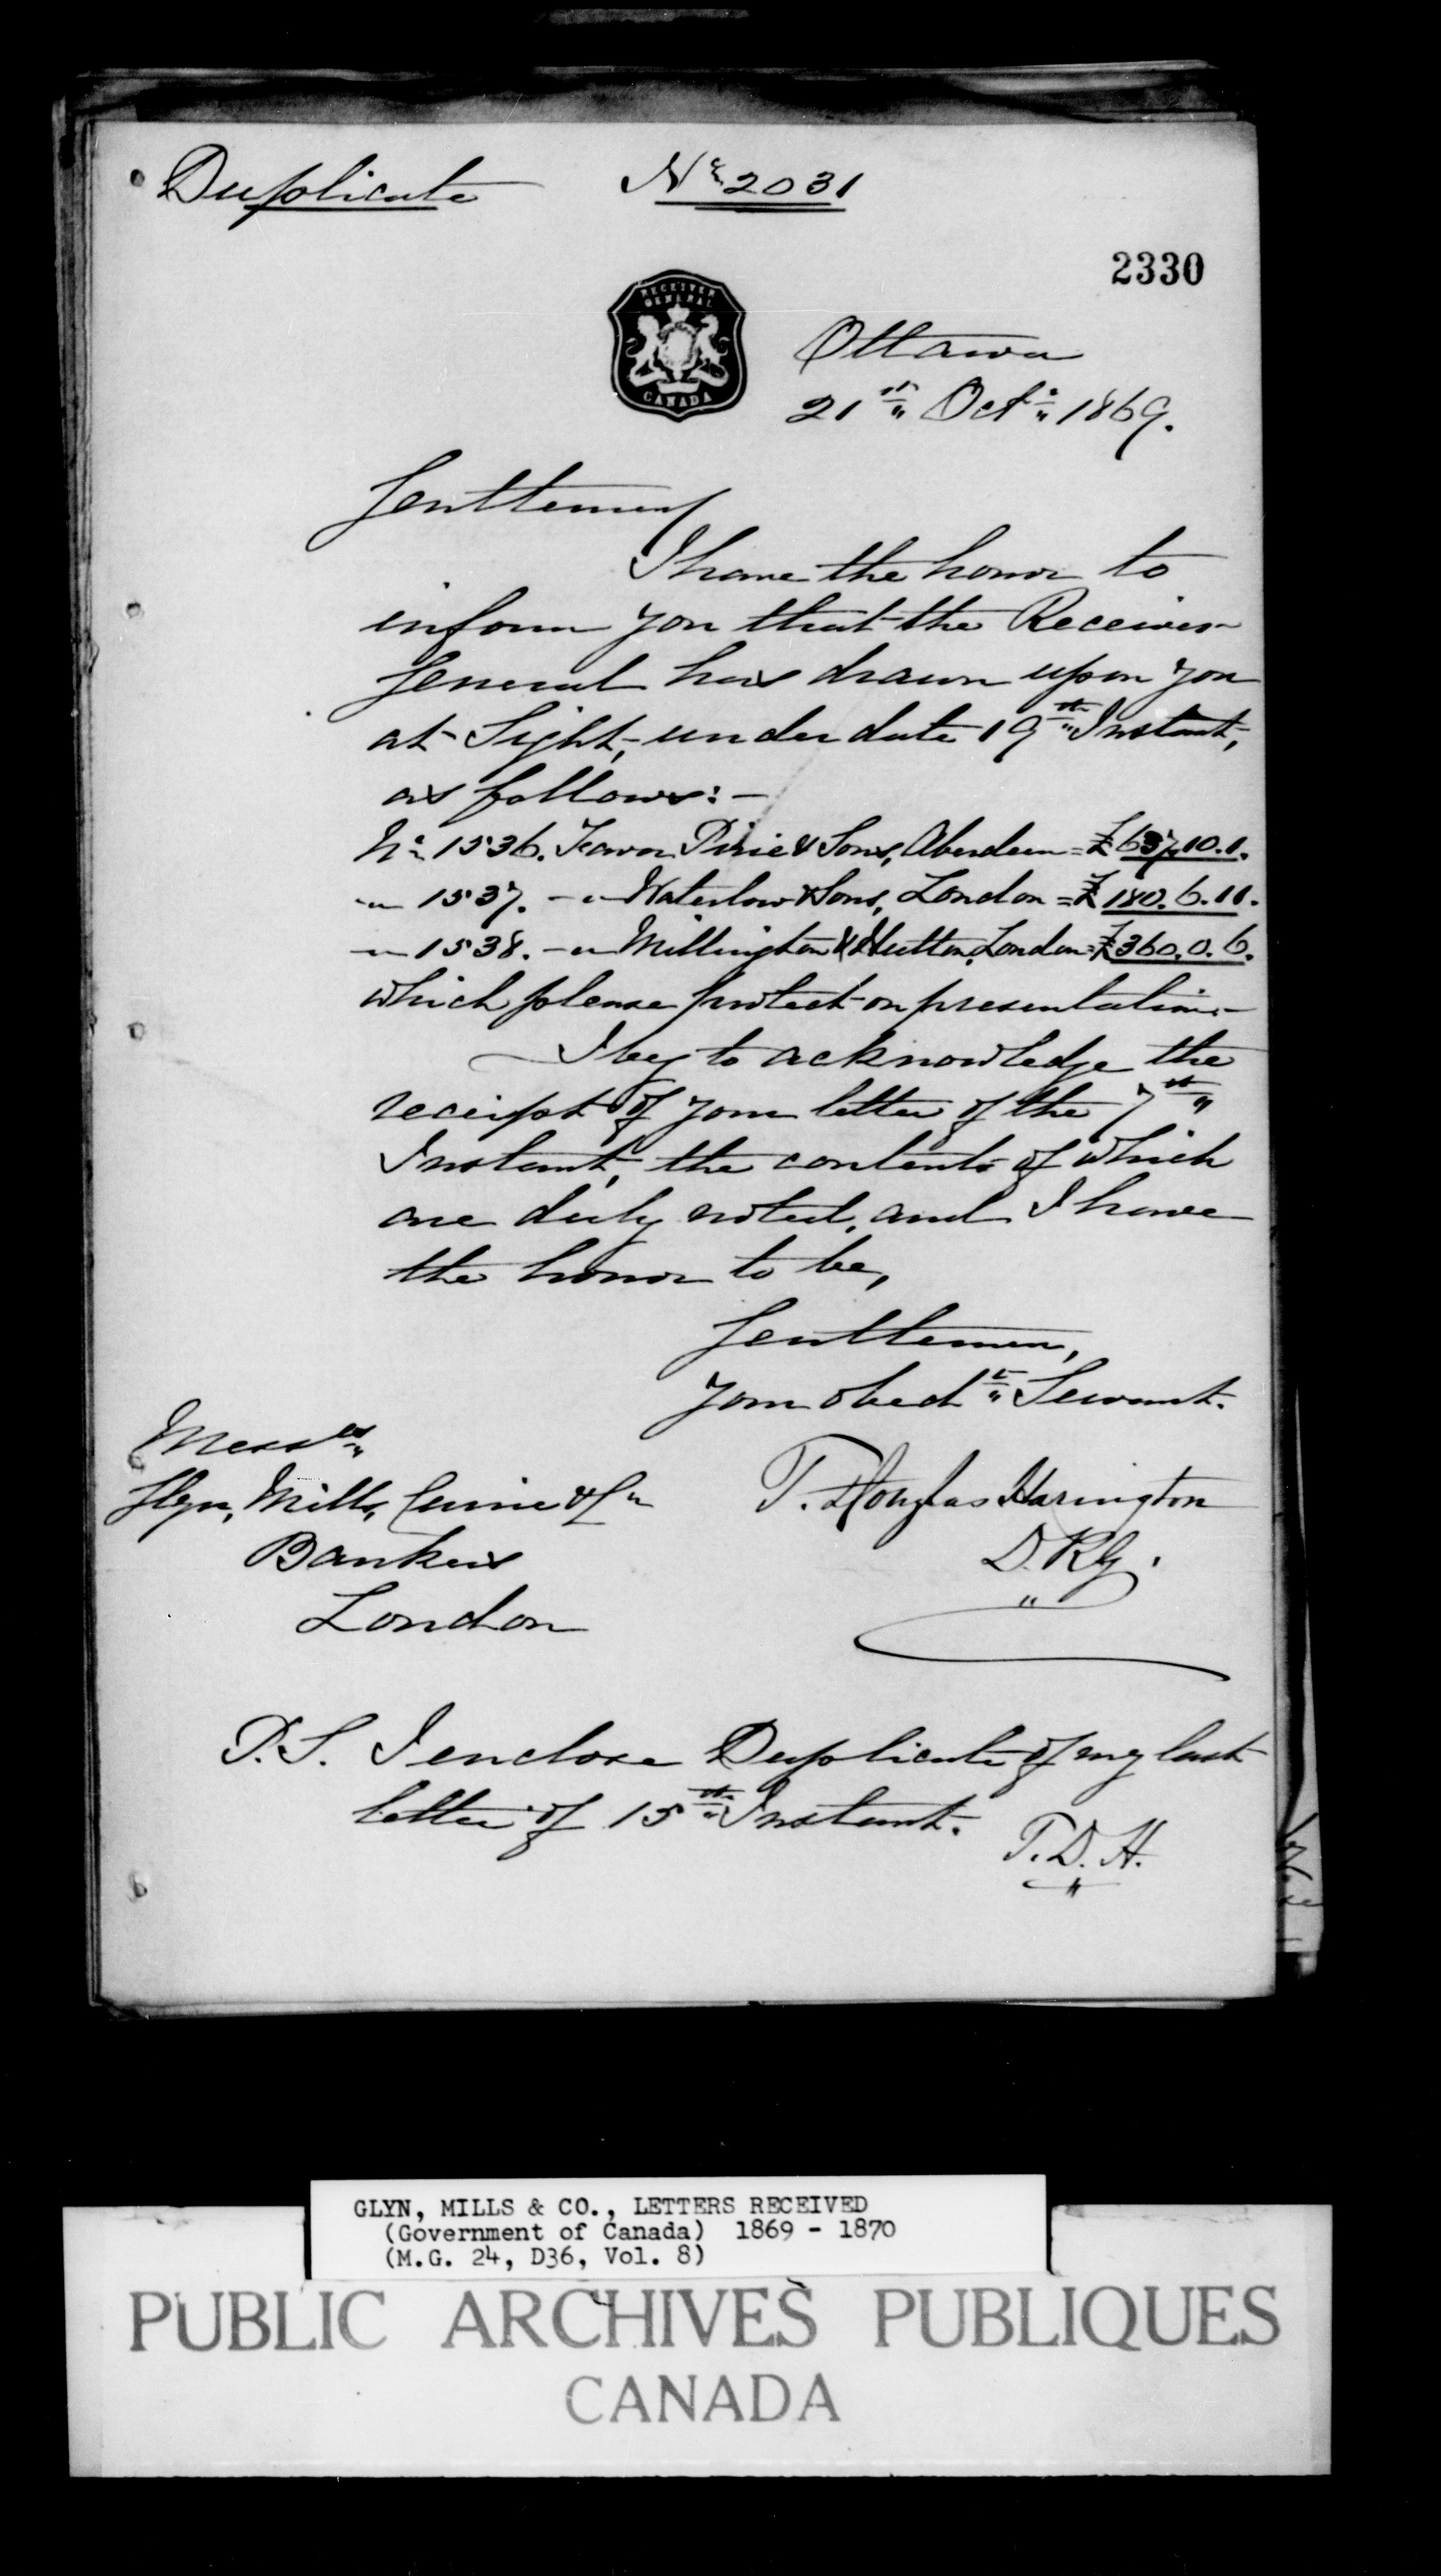 Duplicate
No 2031
2330
RECEIVER
GENERAL
CANADA
Ottawa
21st Octr 1869.
Gentlemen
I have the honor to
inform you that the Receiver
General has drawn upon you
at Sight, under date 19th Instant,
as follows:-
No 1536. Favor Pirie & Sons, Aberdeen = £637.10.1.
" 1537. - " Waterlow & Sons, London = £180.6.11.
" 1538. - " Millington & Hutton, London = £360.0.6.
which please protect on presentation.-
I beg to acknowledge the
receipt of your letter of the 7th
Instant, the contents of which
are duly noted, and I have
the honor to be,
Gentlemen,
Your obedt Servant.
Messrs
Glyn, Mills, Currie & Co
Bankers
London
T. Douglas Harington
D.R.G.
P.S. I enclose Duplicate of my last
letter of 15th Instant.
T.D.H.
GLYN, MILLS & CO., LETTERS RECEIVED
(Government of Canada) 1869 - 1870
(M.G. 24, D36, Vol. 8)
PUBLIC ARCHIVES PUBLIQUES
CANADA